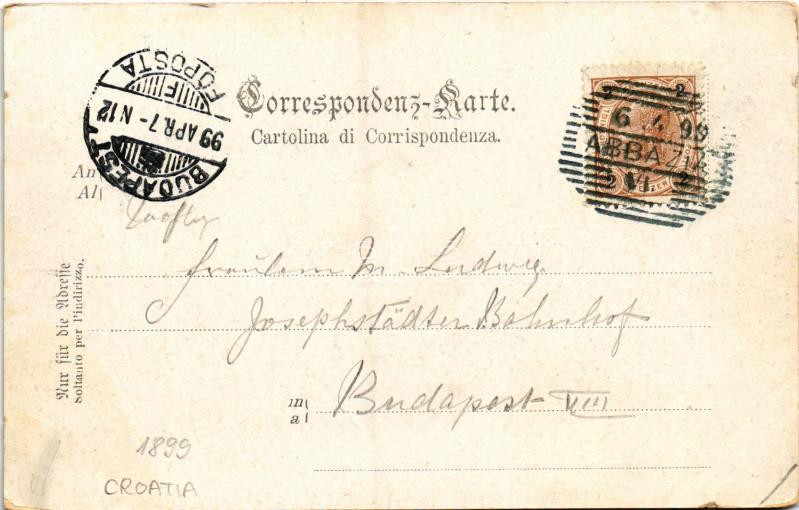 BUDAPEST
99 APR. 7 - N. 12
FŐPOSTA
Correspondenz-Karte.
Cartolina di Corrispondenza.
2 2
6 4 99
ABBAZIA
VI
2 2
An
Al
Fräulein M. Ludwig
Josephstädter Bahnhof
in
a
Budapest VIII
Nur für die Adresse
Soltanto per l'indirizzo.
1899
CROATIA